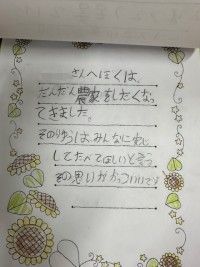 さんへぼくは、
だんだん農家をしたくなっ
てきました。
そのりゆうはみんなに安心
してたべてほしいと言う
その思いがかっこいいです